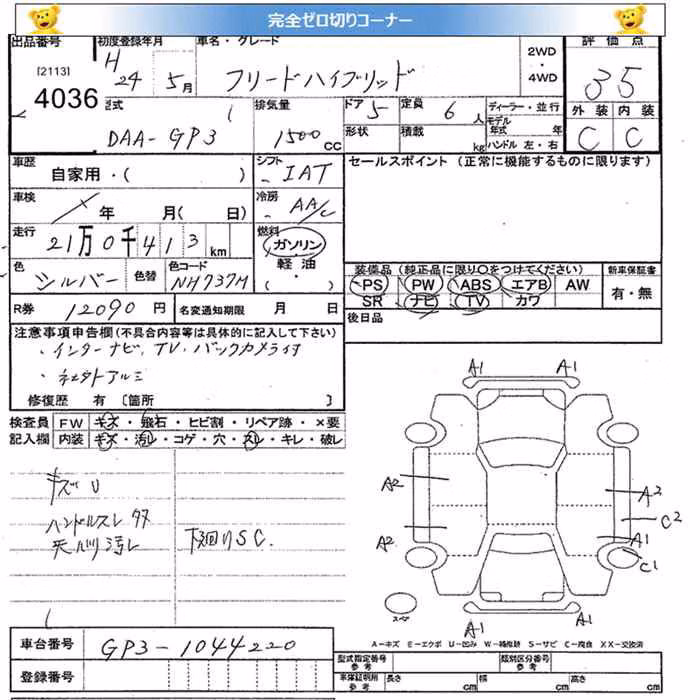 完全ゼロ切りコーナー
出品番号 初度登録年月 車名・グレード 2WD ・ 4WD 評価点
[2113] 4036 H 24 5月 フリードハイブリッド 35
型式 排気量 ドア 5 定員 6人 ディーラー・並行 外装 内装
DAA-GP3 1500cc 形状 積載 kg モデル年式 年 ハンドル 左・右 C C
車歴 自家用・( ) シフト IAT セールスポイント (正常に機能するものに限ります)
車検 年 月( 日) 冷房 AA/C
走行 21万0千413km 燃料 ガソリン 軽油 ( ・ )
色 シルバー 色替 色コード NH737M 装備品 (純正品に限り○をつけてください) 新車保証書
PS PW ABS エアB AW 有・無
R券 12090円 名変通知期限 月 日 SR ナビ TV カワ
後日品
注意事項申告欄(不具合内容等は具体的に記入して下さい)
・インターナビ、TV、バックカメラ付
・社外アルミ
修復歴 有 [箇所 ]
検査員 FW キズ・飛石・ヒビ割・リペア跡・×要
記入欄 内装 キズ・汚レ・コゲ・穴・スレ・キレ・破レ
キズU
ハンドルスレ
下廻りSC.
A1 A1
A2 A2
C2
A2 A1
C1
A1 A1
スペア
A-キズ E-エクボ U-凹み W-補修跡 S-サビ C-腐食 XX-交換済
車台番号 GP3-1044220
登録番号
型式指定番号 参考 類別区分番号 参考
車体証明用 参考 長さ cm 幅 cm 高さ cm